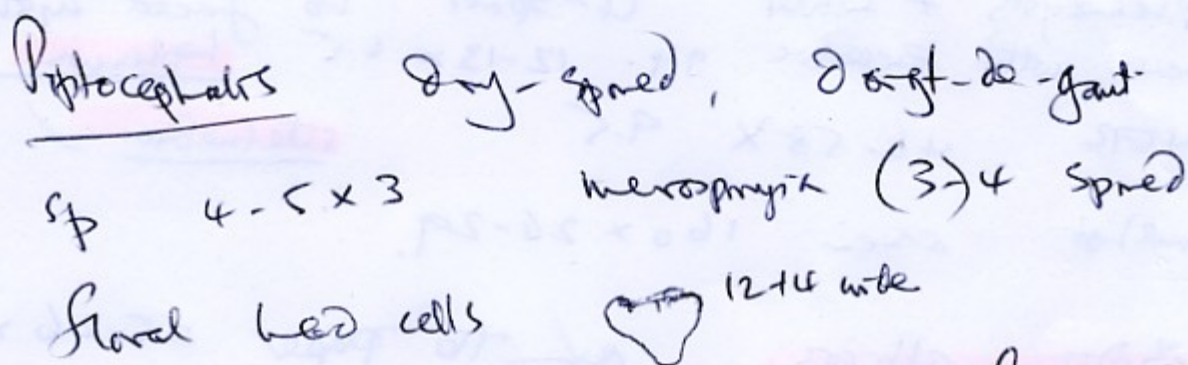 Piptocephalis dry-spored, doigt-de-gant
sp 4-5 x 3 merosporangia (3-)4 spored
floral head cells 12-14 wide